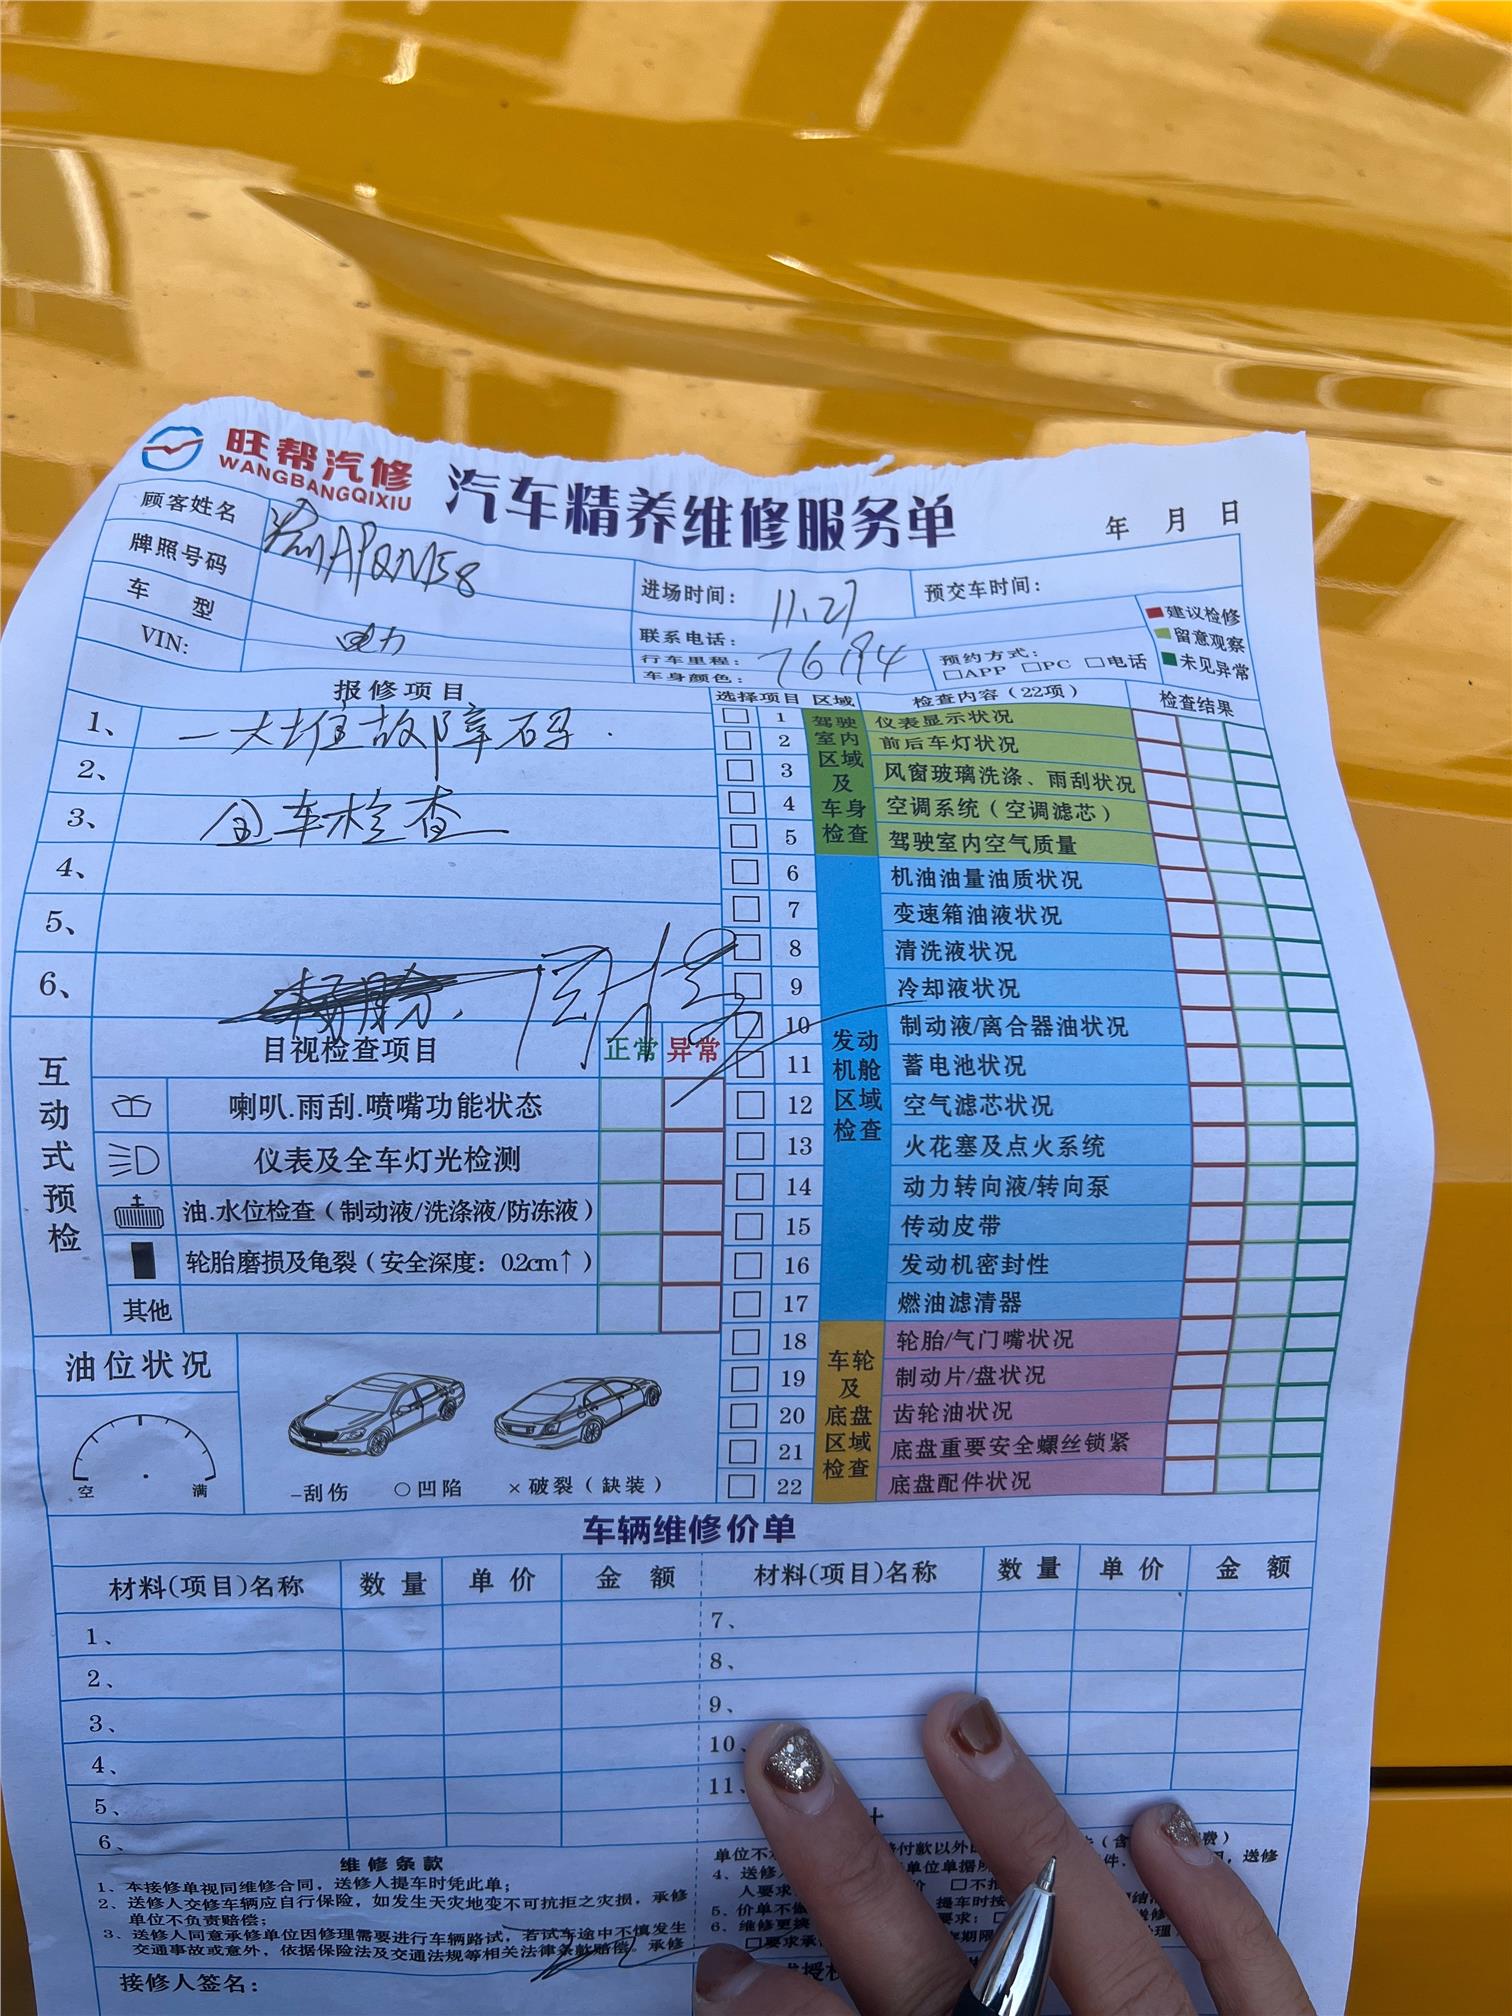 旺帮汽修
WANGBANGQIXIU
汽车精养维修服务单
年 月 日
顾客姓名
牌照号码
APQN158
进场时间: 11.27
预交车时间:
车 型
联系电话:
VIN:
电力
行车里程: 76194
车身颜色:
预约方式:
□APP □PC □电话
建议检修
留意观察
未见异常
报修项目
1、一大堆故障码.
2、
3、全车检查
4、
5、
6、
同损
选择项目 区域 检查内容（22项） 检查结果
驾驶室内区域及车身检查
1 仪表显示状况
2 前后车灯状况
3 风窗玻璃洗涤、雨刮状况
4 空调系统（空调滤芯）
5 驾驶室内空气质量
发动机舱区域检查
6 机油油量油质状况
7 变速箱油液状况
8 清洗液状况
9 冷却液状况
10 制动液/离合器油状况
11 蓄电池状况
12 空气滤芯状况
13 火花塞及点火系统
14 动力转向液/转向泵
15 传动皮带
16 发动机密封性
17 燃油滤清器
车轮及底盘区域检查
18 轮胎/气门嘴状况
19 制动片/盘状况
20 齿轮油状况
21 底盘重要安全螺丝锁紧
22 底盘配件状况
互动式预检
目视检查项目 正常 异常
喇叭.雨刮.喷嘴功能状态
仪表及全车灯光检测
油.水位检查（制动液/洗涤液/防冻液）
轮胎磨损及龟裂（安全深度：0.2cm↑）
其他
油位状况
空 满
–刮伤 ○凹陷 ×破裂（缺装）
车辆维修价单
材料(项目)名称 数量 单价 金额 材料(项目)名称 数量 单价 金额
1、 7、
2、 8、
3、 9、
4、 10、
5、 11、
6、
维修条款
1、本接修单视同维修合同，送修人提车时凭此单；
2、送修人交修车辆应自行保险，如发生天灾地变不可抗拒之灾损，承修
单位不负责赔偿；
3、送修人同意承修单位因修理需要进行车辆路试，若试车途中不慎发生
交通事故或意外，依据保险法及交通法规等相关法律条款赔偿。承修
单位不
付款以外
4、送修人
单位单据
人要求
5、价单不
提车时按
6、维修更换
要求：
□要求承
年期限
接修人签名：